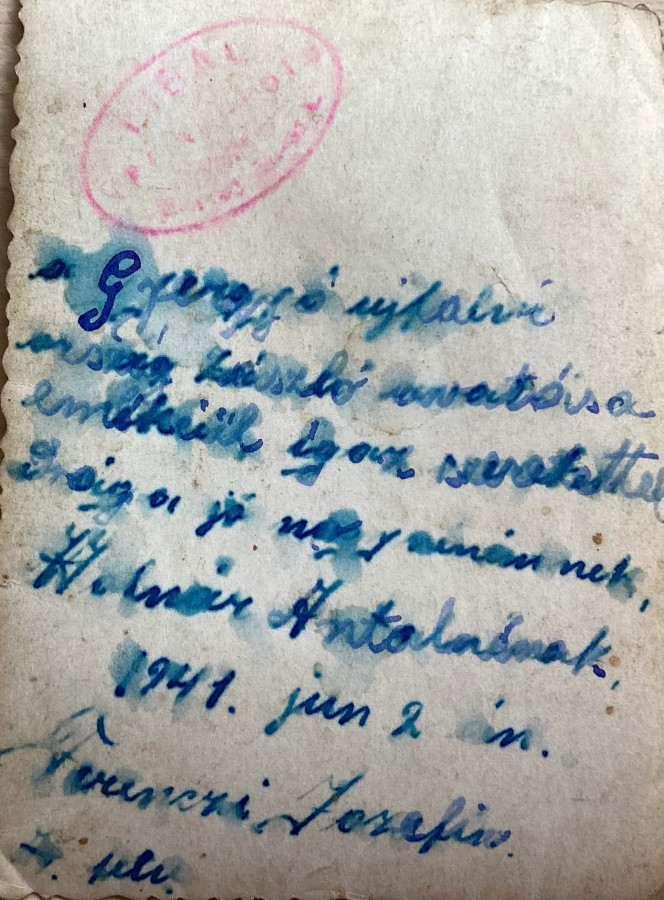 a Gyergyó ujfalvi
ország zászló avatása
emékéül igaz szeretettel
Drága, jó nagy nénémnek,
Molnár Antalnénak,
1941. jun 2 án.
Ferenczi Jozefin.